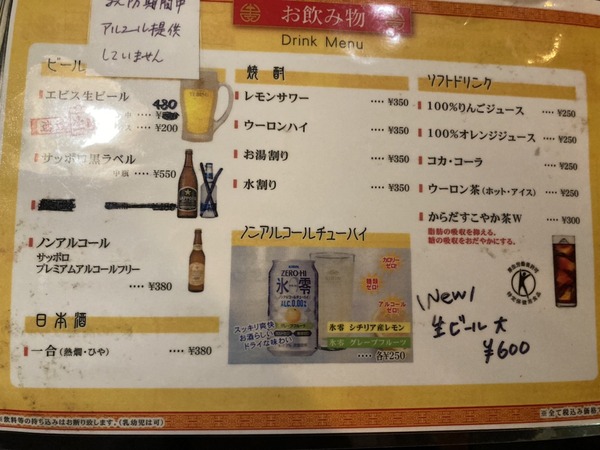 お飲み物
Drink Menu
期間中
アルコール提供
していません
ビール
エビス生ビール
430
¥200
サッポロ黒ラベル
中瓶 ‥‥ ¥550
ノンアルコール
サッポロ
プレミアムアルコールフリー
‥‥ ¥380
日本酒
一合(熱燗・ひや) ‥‥ ¥380
焼酎
レモンサワー ‥‥ ¥350
ウーロンハイ ‥‥ ¥350
お湯割り ‥‥ ¥350
水割り ‥‥ ¥350
ノンアルコールチューハイ
ZERO-HI
氷零
ALC.0.00%
グレープフルーツ
スッキリ爽快
お酒らしい
ドライな味わい
カロリーゼロ!
糖類ゼロ!
アルコールゼロ!
氷零 シチリア産レモン
氷零 グレープフルーツ
‥‥ 各¥250
ソフトドリンク
100%りんごジュース ‥‥ ¥250
100%オレンジジュース ‥‥ ¥250
コカ・コーラ ‥‥ ¥250
ウーロン茶(ホット・アイス) ‥‥ ¥250
からだすこやか茶W ‥‥ ¥300
脂肪の吸収を抑える。
糖の吸収をおだやかにする。
\New/
生ビール大
¥600
※飲料等の持ち込みはお断り致します。(乳幼児は可)
※全て税込み価格で